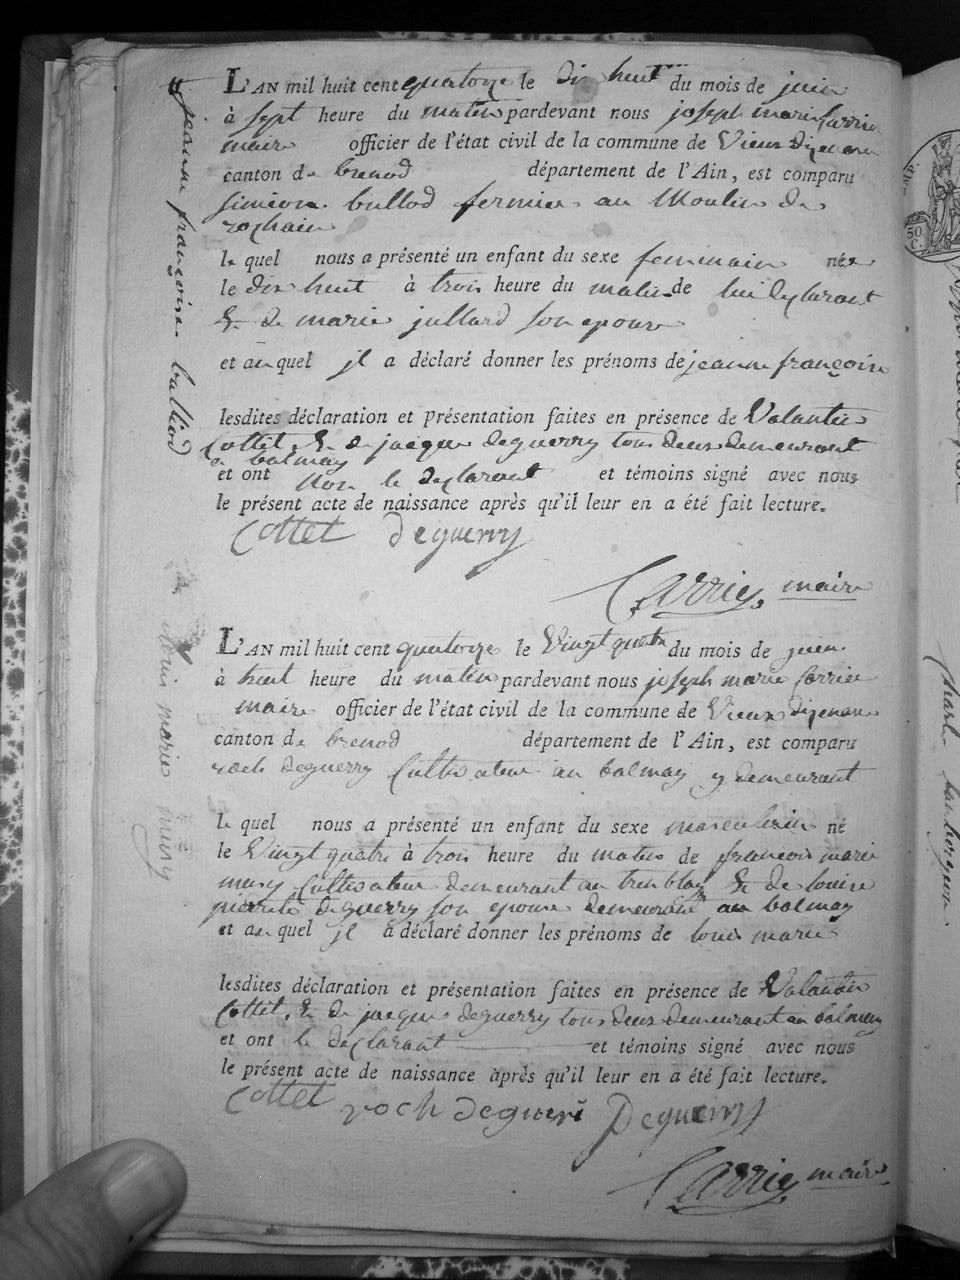 jeanne françoise bullod
L'AN mil huit cent quatorze le dix huit du mois de juin
à sept heure du matin pardevant nous joseph marie Carrier
maire officier de l'état civil de la commune de Vieux dizenave
canton de brenod département de l'Ain, est comparu
simeon bullod fermier au Moulin de
rochain
le quel nous a présenté un enfant du sexe feminain née
le dix huit à trois heure du matin de lui declarant
& de marie jullard son epouse
et auquel jl a déclaré donner les prénoms de jeanne françoise
lesdites déclaration et présentation faites en présence de Valantin
Cottet, & de jacque deguerry tous deux demeurant
a balmay
et ont non le declarant et témoins signé avec nous
le présent acte de naissance après qu'il leur en a été fait lecture.
Cottet Deguerry
Carrier maire
louis marie musy
L'AN mil huit cent quatorze le Vingt quatre du mois de juin
à huit heure du matin pardevant nous joseph marie Carrier
maire officier de l'état civil de la commune de Vieux dizenave
canton de brenod département de l'Ain, est comparu
roch deguerry Cultivateur au balmay y demeurant
le quel nous a présenté un enfant du sexe masculin né
le Vingt quatre à trois heure du matin de francois marie
musy Cultivateur demeurant au tremblay & de louise
pierrette deguerry son epouse demeurant au balmay
et auquel jl a déclaré donner les prénoms de louis marie
lesdites déclaration et présentation faites en présence de Valantin
Cottet, & de jacque deguerry tous deux demeurant au balmay
et ont le declarant et témoins signé avec nous
le présent acte de naissance après qu'il leur en a été fait lecture.
Cottet roch degueri Deguerry
Carrier maire
50
C.